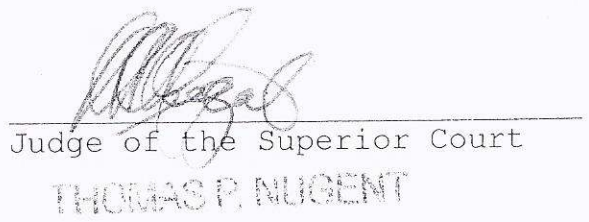 Judge of the Superior Court
THOMAS P. NUGENT